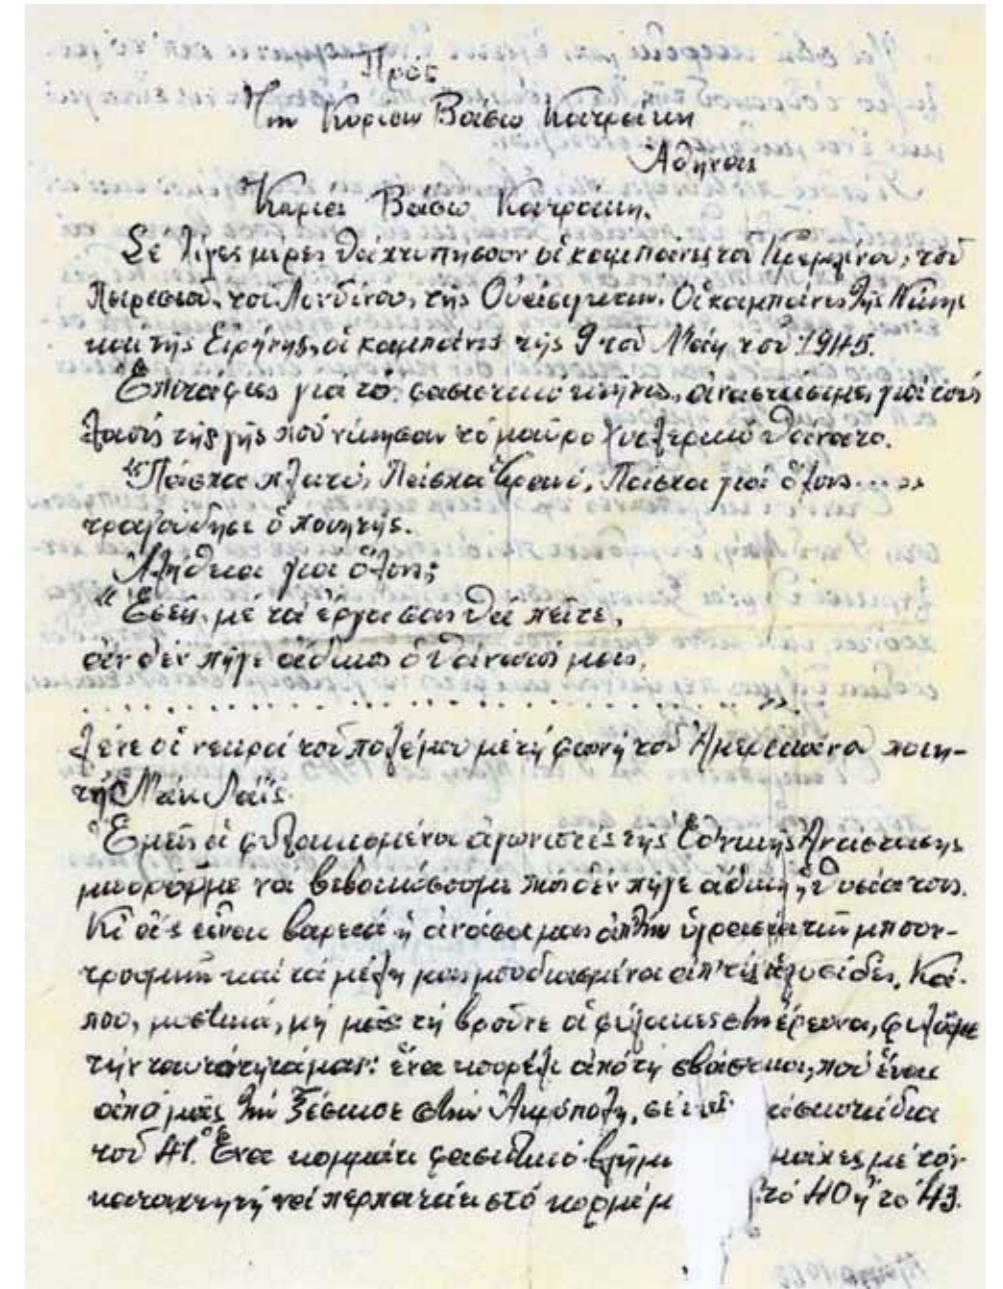 Πρός
Την Κυρίαν Βάσω Κατράκη
Αθήνας
Κυρία Βάσω Κατράκη.
Σε λίγες μέρες θά χτυπήσουν οἱ καμπάνες τοῦ Κρεμλίνου, τοῦ
Πειραιᾶ, τοῦ Λονδίνου, τῆς Οὐάσιγκτων. Οἱ καμπάνες τῆς Νίκης
καί τῆς Εἰρήνης, οἱ καμπάνες τῆς 9 τοῦ Μάη τοῦ 1945.
Ἐπιτάφιες γιά τό φασιστικό κτῆνος, ἀναστάσιμες γιά τούς
λαούς τῆς γῆς πού νίκησαν τό μαῦρο χιτλερικό θάνατο.
"Πάσχα πλατύ, Πάσχα τρανό, Πάσχα γιά ὅλους....»
τραγούδησε ὁ ποιητής.
Ἀλήθεια γιά ὅλους;
"Ἐσεῖς μέ τά ἔργα σας θά πεῖτε,
ἄν δέν πῆγε ἄδικα ὁ θάνατός μας,
. . . . . . . . . . . . . . . . . . . . . . . . . . . . . . ».
λένε οἱ νεκροί τοῦ πολέμου μέ τή φωνή τοῦ Ἀμερικάνου ποιη-
τῆ Μάκ Λαῖς.
Ἐμεῖς οἱ φυλακισμένοι ἀγωνιστές τῆς Ἐθνικῆς Ἀντίστασης
μποροῦμε νά βεβαιώσουμε πώς δέν πῆγε ἄδικη ἡ θυσία τους.
Κι ἄς εἶναι βαρειά ἡ ἀνάσα μας ἀπ' τήν ὑγρασία τῶν μπουν-
τρουμιῶν καί τά μέλη μας μουδιασμένα ἀπ' τίς ἁλυσίδες. Κά-
που, μυστικά, μή μᾶς τή βροῦνε οἱ φύλακες στήν ἔρευνα, φυλᾶμε
τήν ταυτότητά μας: ἕνα κουρέλι ἀπό τή σβάστικα, πού ἕνας
ἀπό μᾶς τήν ξέσκισε στήν Ἀκρόπολη, σέ
τοῦ 41. Ἕνα κομμάτι φασιστικό βλῆμα μάχες με τόν
καταχτητή νά περπατάει στό κορμί μ τό 40 ἤ τό 43.